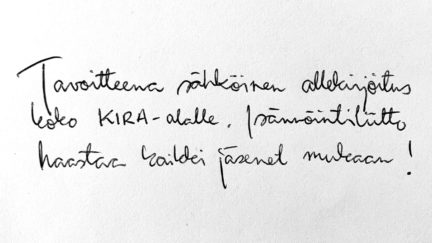 Tavoitteena sähköinen allekirjoitus
koko KIRA-alalle. Isännöintiliitto
haastaa kaikki jäsenet mukaan!